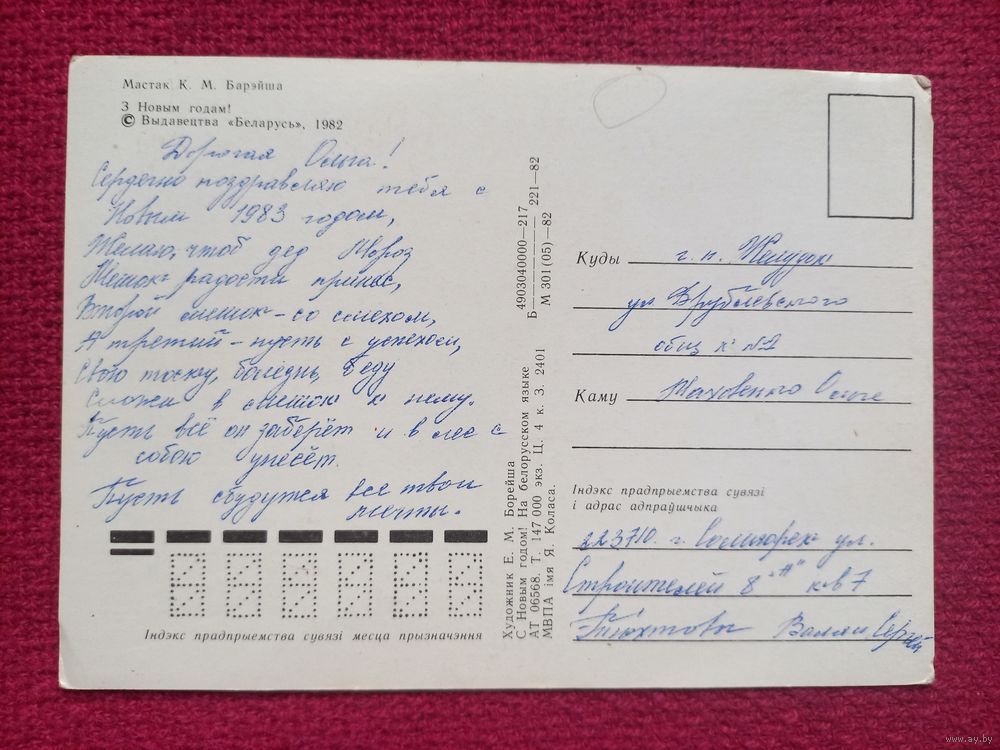 Мастак К. М. Барэйша
З Новым годам!
© Выдавецтва «Беларусь», 1982
Дорогая Ольга!
Сердечно поздравляю тебя с
Новым 1983 годом,
Желаю, чтоб дед Мороз
Мешок радости принёс,
Второй мешок – со смехом,
А третий – пусть с успехом,
Свою тоску, болезнь, Деду
Сложи в мешок к нему.
Пусть всё он заберёт и в лес с
собою унесёт.
Пусть сбудутся все твои
мечты.
Індэкс прадпрыемства сувязі месца прызначэння
Художник Е. М. Борейша
С Новым годом! На белорусском языке
АТ 06568. Т. 147 000 экз. Ц. 4 к. З. 2401
МВПА імя Я. Коласа.
4903040000—217
Б 221—82
М 301(05)—82
Куды г. п. Желудок
ул Врублевского
общ №2
Каму Ольге
Індэкс прадпрыемства сувязі
і адрас адпраўшчыка
223710. г. Солигорск ул.
Строителей 8 "А" кв 7
Валя Сергей
www.ay.by